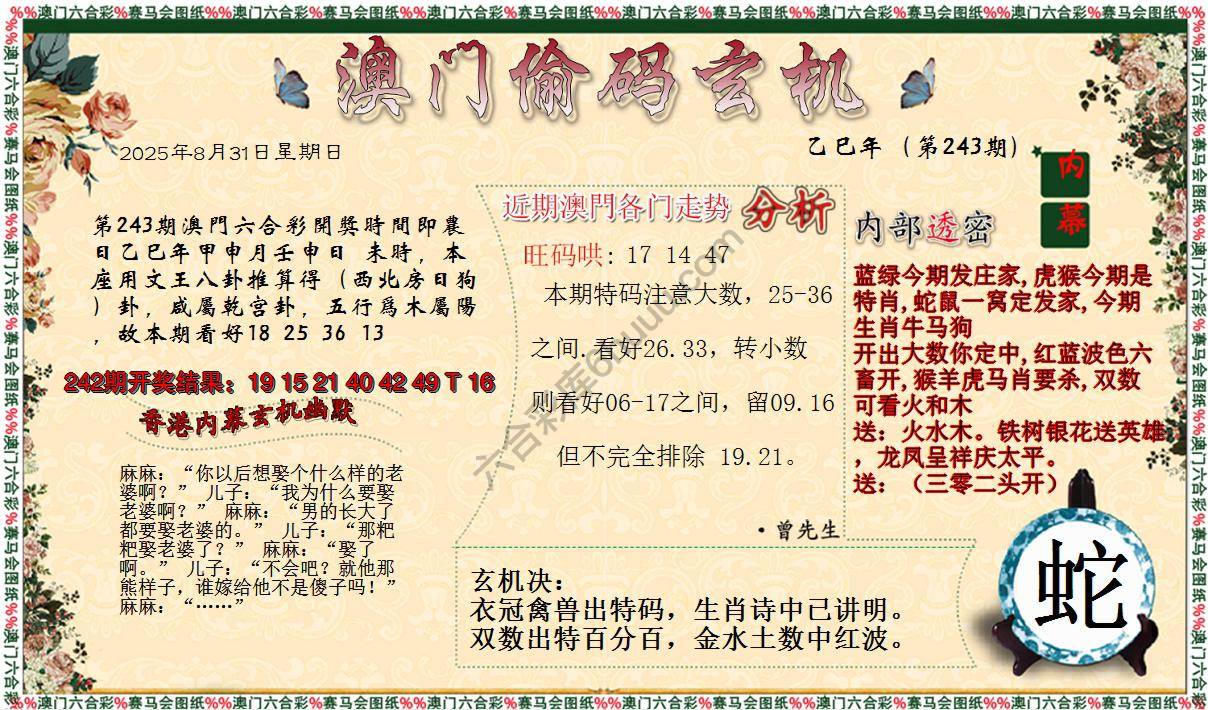 %%澳门六合彩%赛马会图纸%%澳门六合彩%赛马会图纸%%澳门六合彩%赛马会图纸%%澳门六合彩%赛马会图纸
澳门偷码玄机
2025年8月31日星期日
乙巳年（第243期）
内幕
第243期澳門六合彩開獎時間即農
日乙巳年甲申月壬申日 未時，本
座用文王八卦推算得（西北房日狗
）卦，咸屬乾宫卦，五行爲木屬陽
，故本期看好18 25 36 13
242期开奖结果：19 15 21 40 42 49 T 16
香港内幕玄机幽默
麻麻：“你以后想娶个什么样的老
婆啊？” 儿子：“我为什么要娶
老婆啊？” 麻麻：“男的长大了
都要娶老婆的。” 儿子：“那粑
粑娶老婆了？” 麻麻：“娶了
啊。” 儿子：“不会吧？就他那
熊样子，谁嫁给他不是傻子吗！”
麻麻：“……”
近期澳門各门走势 分析
旺码哄: 17 14 47
本期特码注意大数，25-36
之间.看好26.33，转小数
则看好06-17之间，留09.16
但不完全排除 19.21。
·曾先生
内部透密
蓝绿今期发庄家,虎猴今期是
特肖,蛇鼠一窝定发家,今期
生肖牛马狗
开出大数你定中,红蓝波色六
畜开,猴羊虎马肖要杀,双数
可看火和木
送：火水木。铁树银花送英雄
，龙凤呈祥庆太平。
送：（三零二头开）
玄机决：
衣冠禽兽出特码，生肖诗中已讲明。
双数出特百分百，金水土数中红波。
蛇
六合彩库6huuu.com
%%澳门六合彩%赛马会图纸%%澳门六合彩%赛马会图纸%%澳门六合彩%赛马会图纸%%澳门六合彩%赛马会图纸